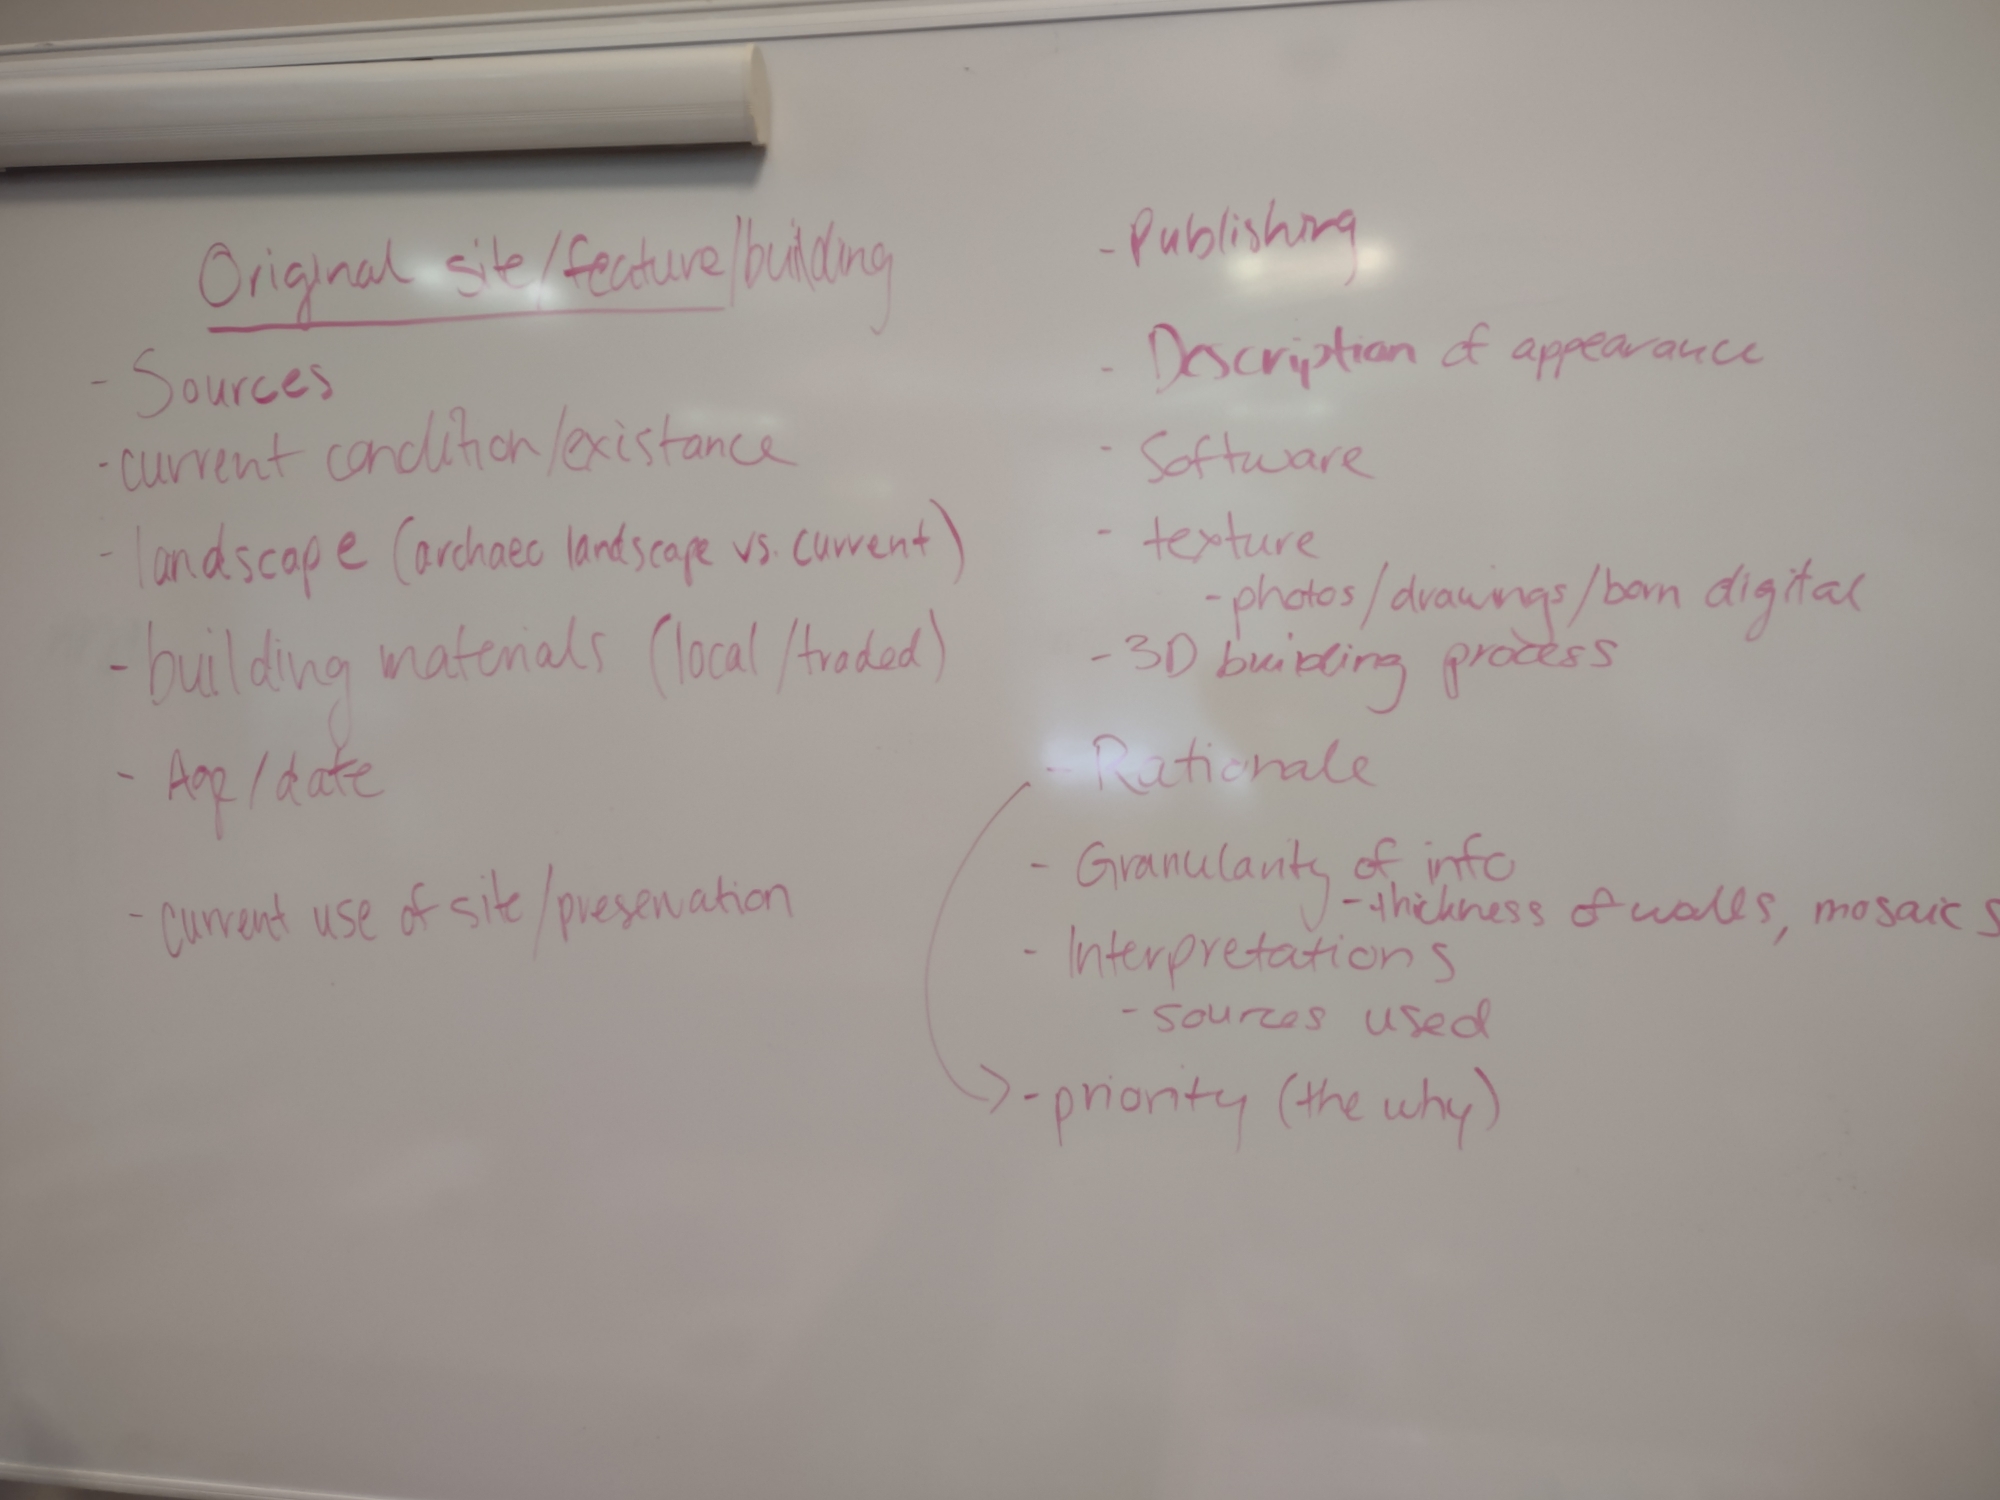 Original site/feature/building
- Sources
- current condition/existance
- landscape (archaeo landscape vs. current)
- building materials (local/traded)
- Age/date
- current use of site/preservation
- Publishing
- Description of appearance
- Software
- texture
- photos/drawings/born digital
- 3D building process
- Rationale
- Granularity of info
- thickness of walls, mosaics
- Interpretations
- sources used
- priority (the why)